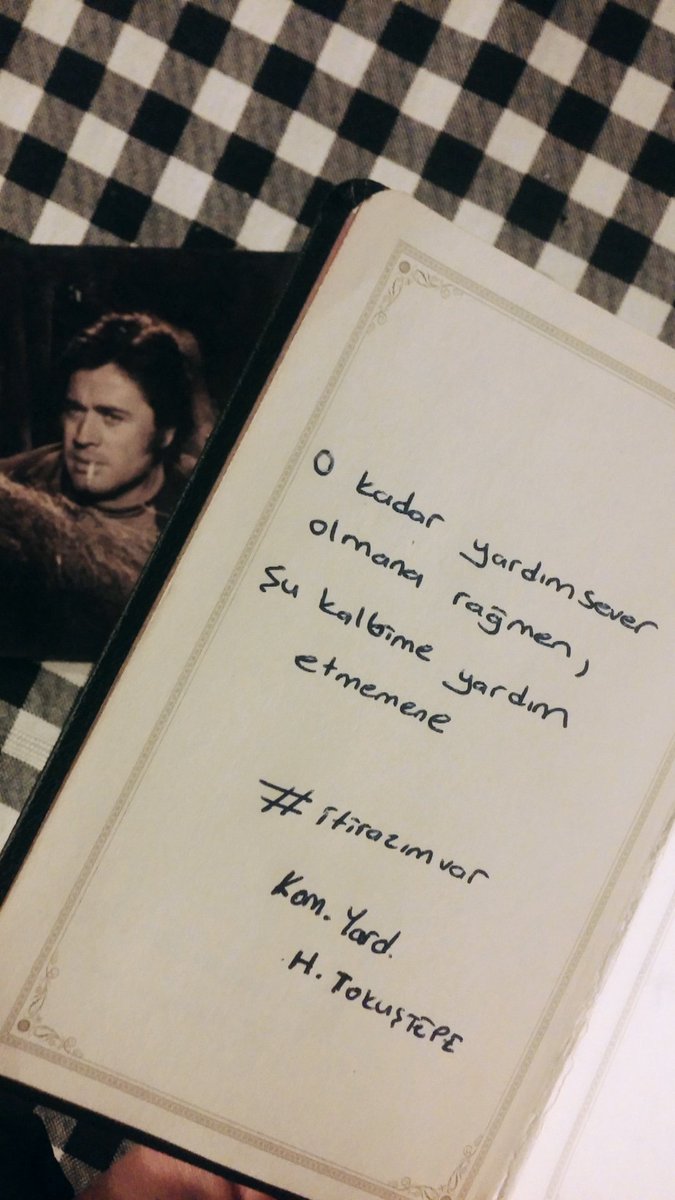 O kadar yardımsever
olmana rağmen,
Şu kalbime yardım
etmemene
#itirazımvar
Kom. Yard.
H. TOKUŞTEPE